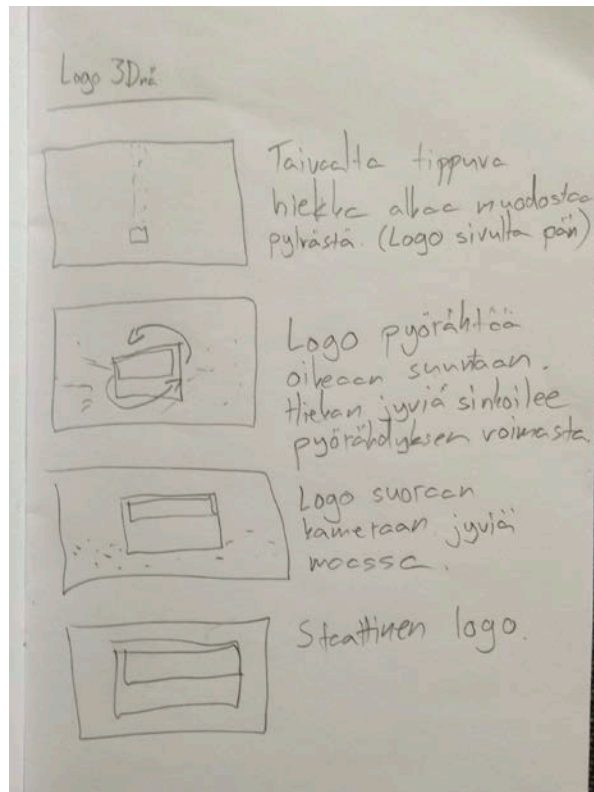 Logo 3Dnä
Taivaalta tippuva
hiekka alkaa muodostaa
pylvästä. (Logo sivulta päin)
Logo pyörähtää
oikeaan suuntaan.
Hiekan jyviä sinkoilee
pyörähdyksen voimasta.
Logo suoraan
kameraan jyviä
maassa.
Staattinen logo.